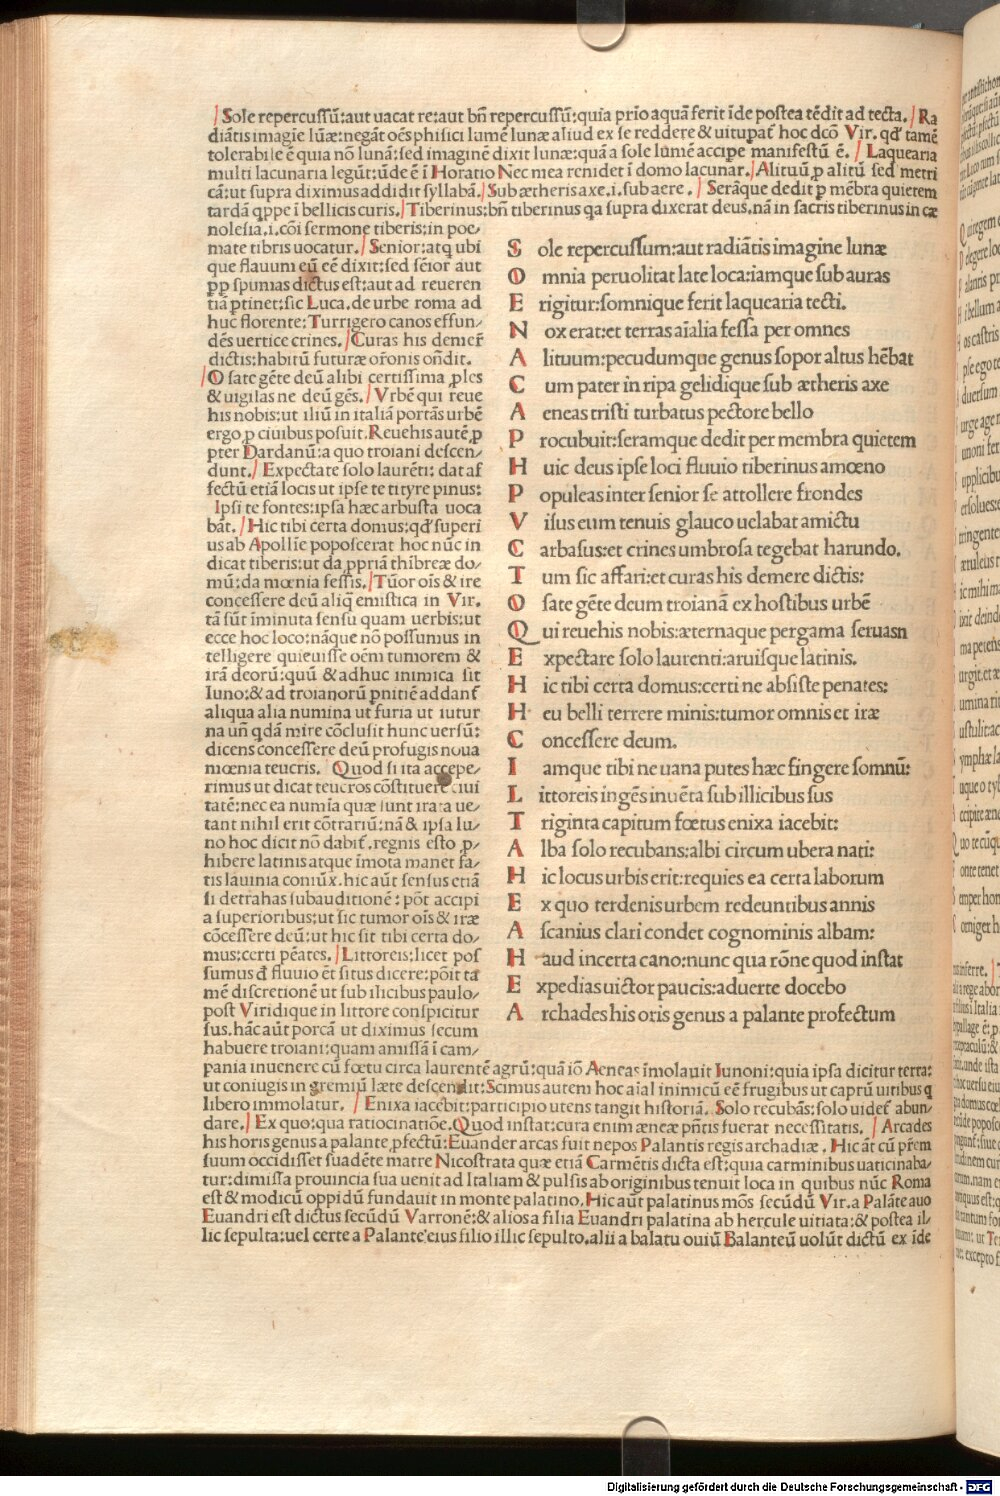 Sole repercussũ:aut uacat re:aut bñ repercussũ:quia prio aquã ferit ĩde postea tẽdit ad tecta. Ra
diãtis imagĩe lũæ:negãt oẽs phisici lumẽ lunæ aliud ex se reddere & uituꝑat hoc dcõ Vir. qđ tamẽ
tolerabile ẽ quia nõ lunã:sed imaginẽ dixit lunæ:quã a sole lumẽ accipe manifestũ ẽ. Laquearia
multi lacunaria legũt:ũde ẽ ĩ Horatio Nec mea renidet ĩ domo lacunar. Alituũ ꝑ alitũ sed metri
cã:ut supra diximus addidit syllabã. Sub ætheris axe.i.sub aere. Serãque dedit ꝑ mẽbra quietem
tardã qppe ĩ bellicis curis. Tiberinus:bñ tiberinus qa supra dixerat deus.nã in sacris tiberinus in cæ
nolesia.i.cõi sermone tiberis:in poe
mate tibris uocatur. Senior:atq ubi
que flauum eũ eẽ dixit:sed sẽior aut
ꝓp spumas dictus est:aut ad reueren
tiã ꝑtinet:sic Luca.de urbe roma ad
huc florente:Turrigero canos effun/
dẽs uertice crines. Curas his demer
dictis:habitũ futuræ oronis oñdit.
O sate gẽte deũ alibi certissima ꝓles
& uigilas ne deũ gẽs. Vrbẽ qui reue
his nobis:ut iliũ in italiã portãs urbẽ
ergo ꝓ ciuibus posuit.Reuehis autẽ ꝓ
pter Dardanũ:a quo troiani descen/
dunt. Expectate solo laurẽti: dat af
fectũ etiã locis ut ipse te tityre pinus:
Ipsi te fontes:ipsa hæc arbusta uoca
bãt. Hic tibi certa domus:qđ superi
us ab Apollĩe poposcerat hoc nũc in
dicat tiberis:ut da ꝓpriã thĩbreæ do/
mũ:da mœnia fessis. Tũor oĩs & iræ
concessere deũ aliq emistica in Vir.
tã sũt ĩminuta sensu quam uerbis:ut
ecce hoc loco:nãque nõ possumus in
telligere quieuisse oẽm tumorem &
irã deorũ:quũ & adhuc inimica sit
Iuno:& ad troianorũ ꝑnitiẽ addant
aliqua alia numina ut furia ut iutur
na uñ qdã mire cõclusit hunc uersũ:
dicens concessere deũ profugis noua
mœnia teucris. Quod si ita accepe/
rimus ut dicat teucros cõstituere ciui
tatẽ:nec ea numĩa quæ sunt irata ue/
tant nihil erit cõtrariũ:nã & ipsa Iu/
no hoc dicit nõ dabit.regnis esto ꝓ/
hibere latinis atque ĩmota manet fa/
tis lauinia coniũx.hic aũt sensus etiã
si detrahas subauditionẽ: põt accipi
a superioribus:ut sic tumor oĩs & iræ
cõcessere deũ:ut hic sit tibi certa do/
mus:certi pẽates. Littoreis:licet pos
sumus đ fluuio ẽt situs dicere:põit tã
mẽ discretionẽ ut sub ilicibus paulo/
post Viridique in littore conspicitur
sus.hãc aũt porcã ut diximus secum
habuere troiani:quam amissã ĩ cam/
S ole repercussum:aut radiãtis imagine lunæ
O mnia peruolitat late loca:iamque sub auras
E rigitur:somnique ferit laquearia tecti.
N ox erat:et terras aĩalia fessa per omnes
A lituum:pecudumque genus sopor altus hẽbat
C um pater in ripa gelidique sub ætheris axe
A eneas tristi turbatus pectore bello
P rocubuit:seramque dedit per membra quietem
H uic deus ipse loci fluuio tiberinus amœno
P opuleas inter senior se attollere frondes
V isus eum tenuis glauco uelabat amictu
C arbasus:et crines umbrosa tegebat harundo.
T um sic affari:et curas his demere dictis:
O sate gẽte deum troianã ex hostibus urbẽ
Q ui reuehis nobis:æternaque pergama seruasn
E xpectare solo laurenti:aruisque latinis.
H ic tibi certa domus:certi ne absiste penates:
H eu belli terrere minis:tumor omnis et iræ
C oncessere deum.
I amque tibi ne uana putes hæc fingere somnũ:
L ittoreis ingẽs inuẽta sub illicibus sus
T riginta capitum fœtus enixa iacebit:
A lba solo recubans:albi circum ubera nati:
H ic locus urbis erit:requies ea certa laborum
E x quo terdenis urbem redeuntibus annis
A scanius clari condet cognominis albam:
H aud incerta cano:nunc qua rõne quod instat
E xpedias uictor paucis:aduerte docebo
A rchades his oris genus a palante profectum
pania inuenere cũ fœtu circa laurentẽ agrũ:quã iõ Aeneas ĩmolauit Iunoni:quia ipsa dicitur terra:
ut coniugis in gremiũ læte descendit:Scimus autem hoc aĩal inimicũ eẽ frugibus ut caprũ uitibus q
libero immolatur. Enixa iacebit:participio utens tangit historiã. Solo recubãs:solo uidet abun/
dare. Ex quo:qua ratiocinatiõe.Quod instat:cura enim æneæ pñtis fuerat necessitatis. Arcades
his horis genus a palante ꝓfectũ:Euander arcas fuit nepos Palantis regis archadiæ. Hic ãt cũ pr̃em
suum occidisset suadẽte matre Nicostrata quæ etiã Carmẽtis dicta est:quia carminibus uaticinaba/
tur:dimissa prouincia sua uenit ad Italiam & pulsis aboriginibus tenuit loca in quibus nũc Roma
est & modicũ oppidũ fundauit in monte palatino.Hic aũt palatinus mõs secũdũ Vir.a Palãte auo
Euandri est dictus secũdũ Varronẽ:& alios a filia Euandri palatina ab hercule uitiata:& postea il/
lic sepulta:uel certe a Palante eius filio illic sepulto.alii a balatu ouiũ Balanteũ uolũt dictũ ex ĩde
Digitalisierung gefördert durch die Deutsche Forschungsgemeinschaft - DFG